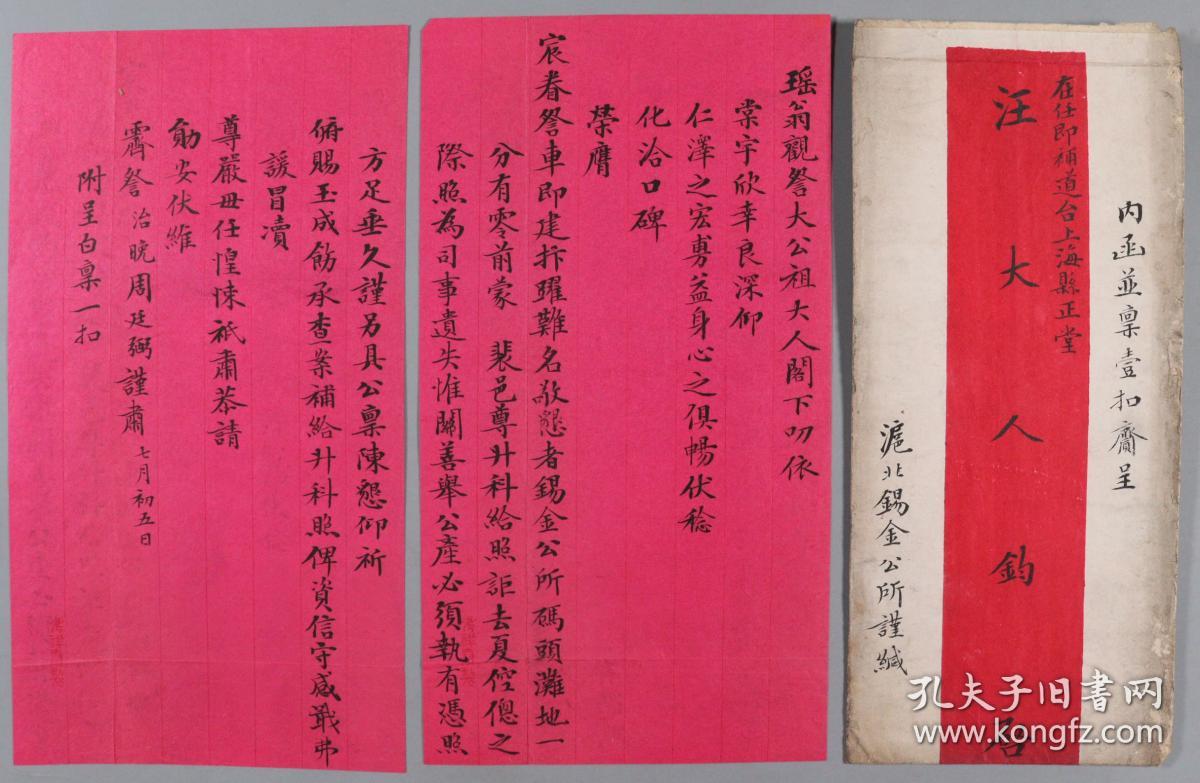 內函並稟壹扣賫呈
在任即補道台上海縣正堂
汪大人鈞啟
滬北錫金公所謹緘
瑶翁觀詧大公祖大人閣下叨依
棠宇欣幸良深仰
仁澤之宏旉益身心之俱暢伏稔
化洽口碑
榮膺
宸眷詧車即建抃躍難名敬懇者錫金公所碼頭灘地一
分有零前蒙 裴邑尊升科給照詎去夏倥傯之
際照為司事遺失惟關善舉公產必須執有憑照
方足垂久謹另具公稟陳懇仰祈
俯賜玉成飭承查案補給升科照俾資信守感戢弗
諼冒瀆
尊嚴毋任惶悚祇肅恭請
勛安伏維
霽詧治晚周廷弼謹肅 七月初五日
附呈白稟一扣
孔夫子旧书网
www.kongfz.com